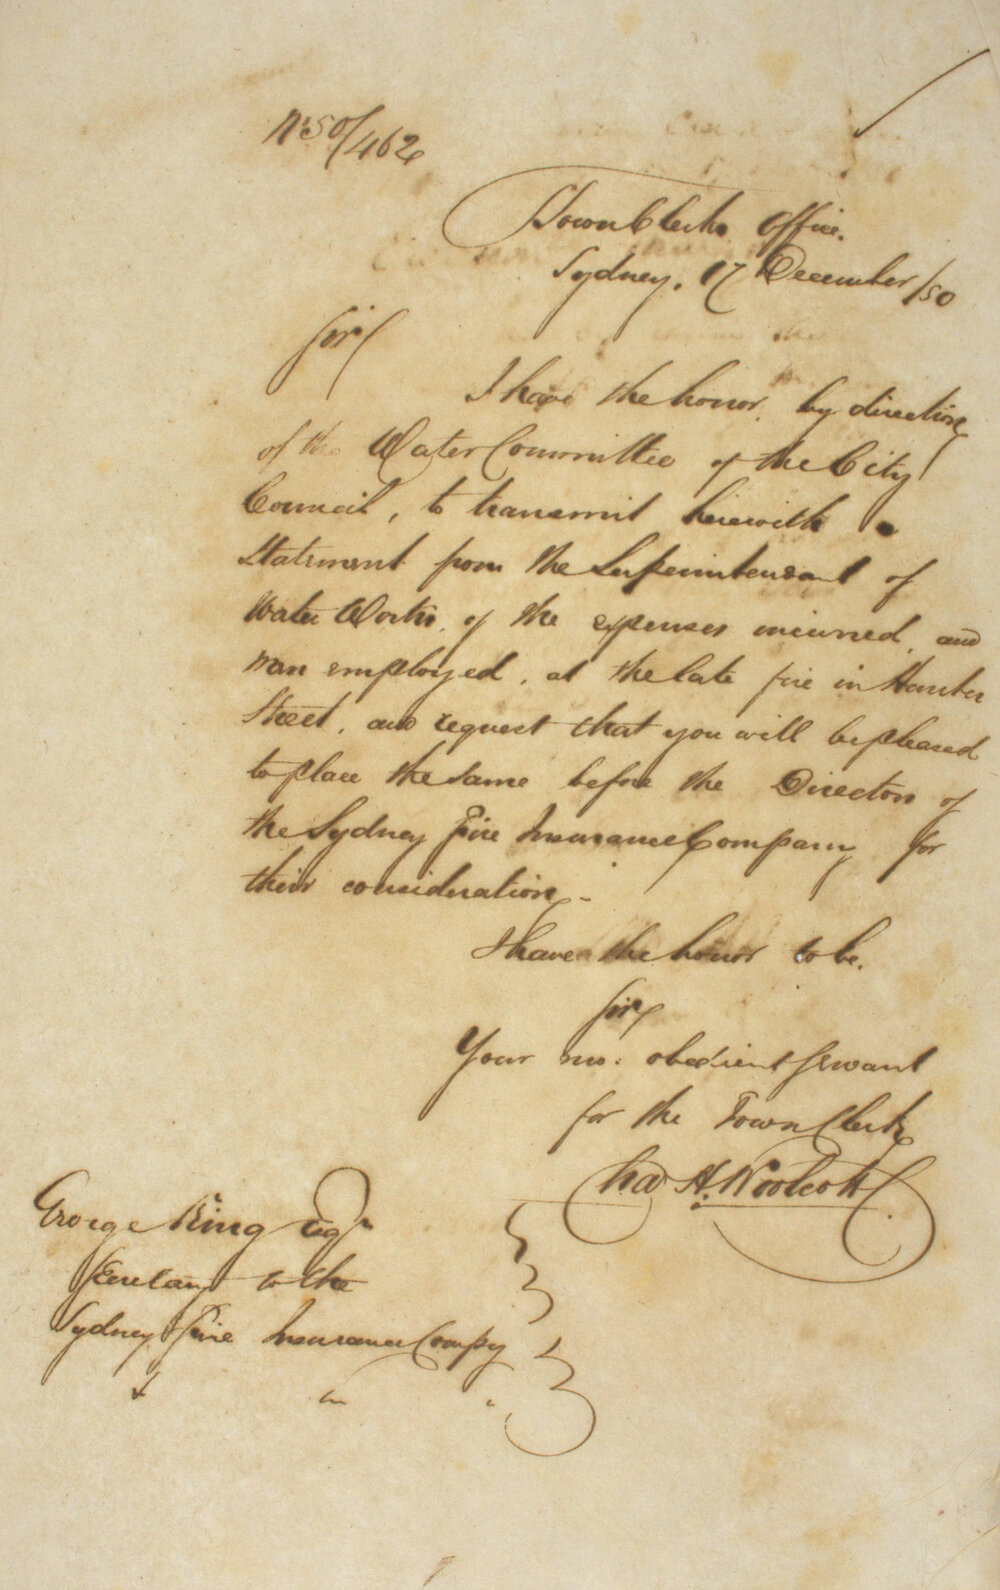 No. 50/462
Town Clerks Office.
Sydney, 17 December /50
Sir
I have the honor, by direction
of the Water Committee of the City
Council, to transmit herewith a
Statement from the Superintendant of
Water Works, of the expenses incurred, and
men employed, at the late fire in Hunter
Street, and request that you will be pleased
to place the same before the Directors of
the Sydney Fire Insurance Company for
their consideration,-
I have the honor to be.
Sir,
Your mo: obedient Servant
for the Town Clerk
Chas H. Woolcott
George King Esqr
Secretary to the
Sydney Fire Insurance Compy